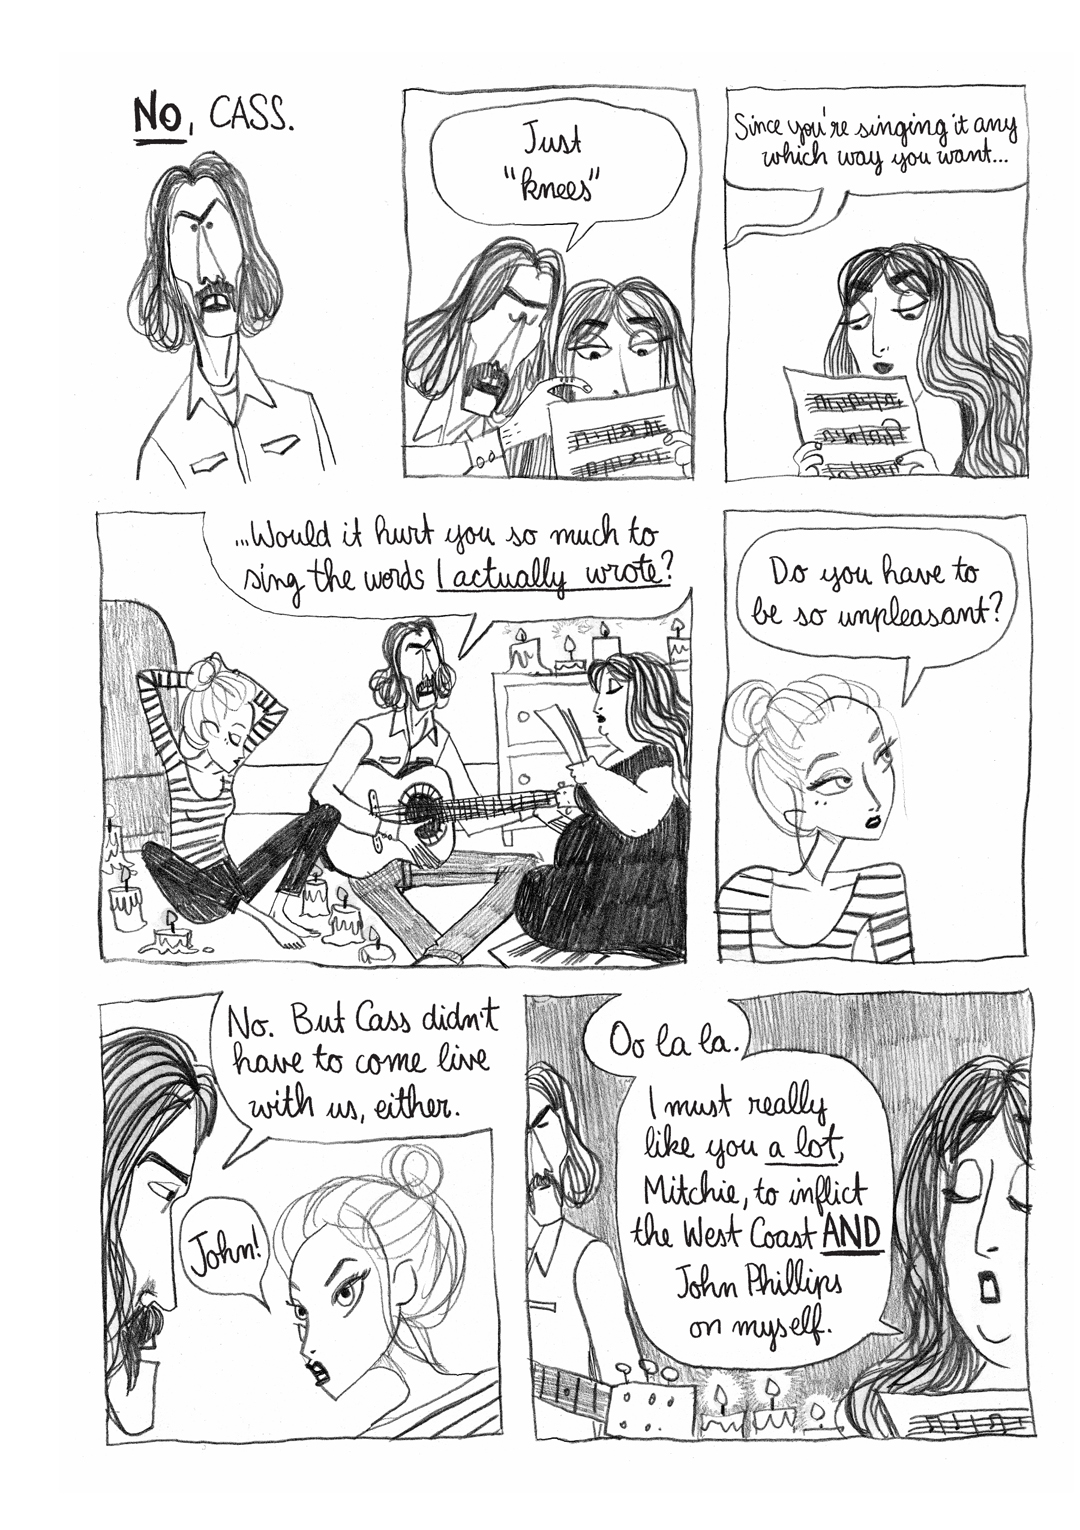 NO, CASS.
Just
"knees"
Since you're singing it any
which way you want...
...Would it hurt you so much to
sing the words I actually wrote?
Do you have to
be so unpleasant?
No. But Cass didn't
have to come live
with us, either.
John!
Oo la la.
I must really
like you a lot,
Mitchie, to inflict
the West Coast AND
John Phillips
on myself.